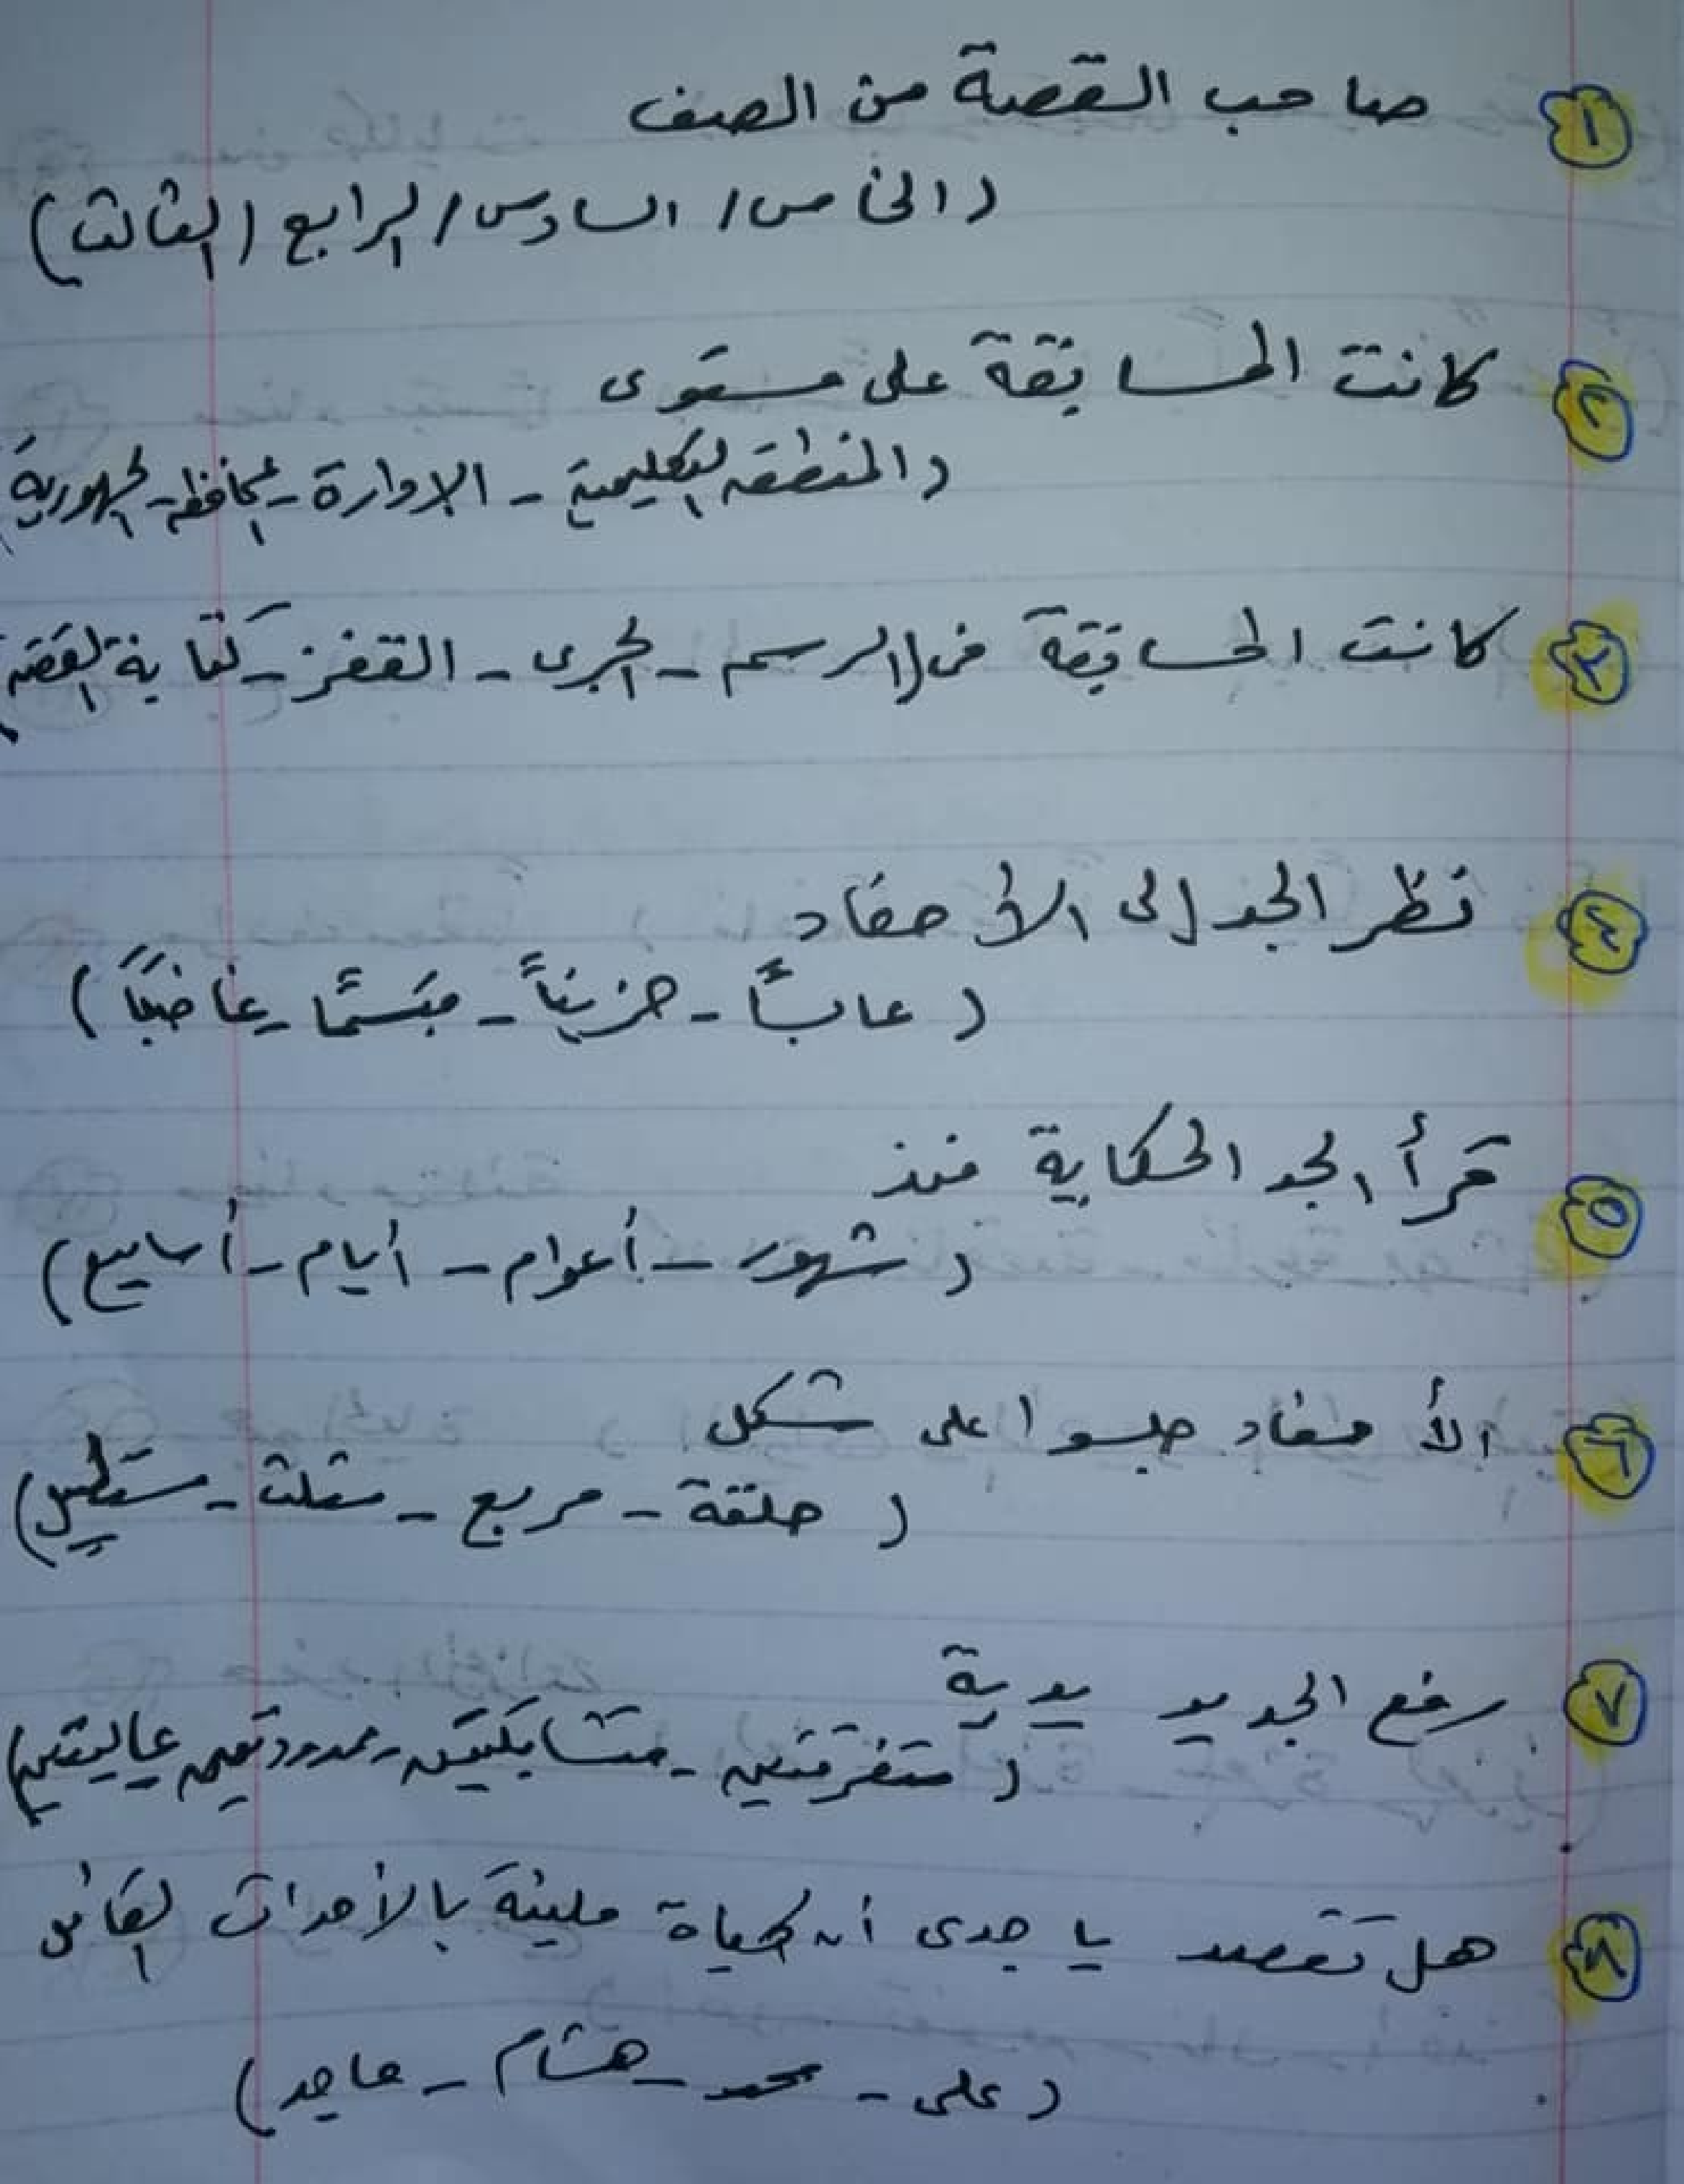 ١ صاحب القصة من الصف
(الخامس / السادس / الرابع / الثالث)
٢ كانت المسابقة على مستوى
(المنطقة التعليمية - الادارة - المحافظه - الجمهورية)
٣ كانت المسابقة فى (الرسم - الجرى - القفز - كتابة القصة)
٤ نظر الجد إلى الأحفاد
(عابسًا - حزينًا - مبتسمًا - غاضبًا)
٥ قرأ الجد الحكاية منذ
(شهور - أعوام - أيام - أسابيع)
٦ الأحفاد جلسوا على شكل
(حلقة - مربع - مثلث - مستطيل)
٧ رفع الجد يد يدية
(متفرقتين - متشابكتين - ممدودتين - عاليتين)
٨ هل تقصد يا جدى أن الحياة مليئة بالأحداث القائل
(على - محمد - هشام - ماجد)